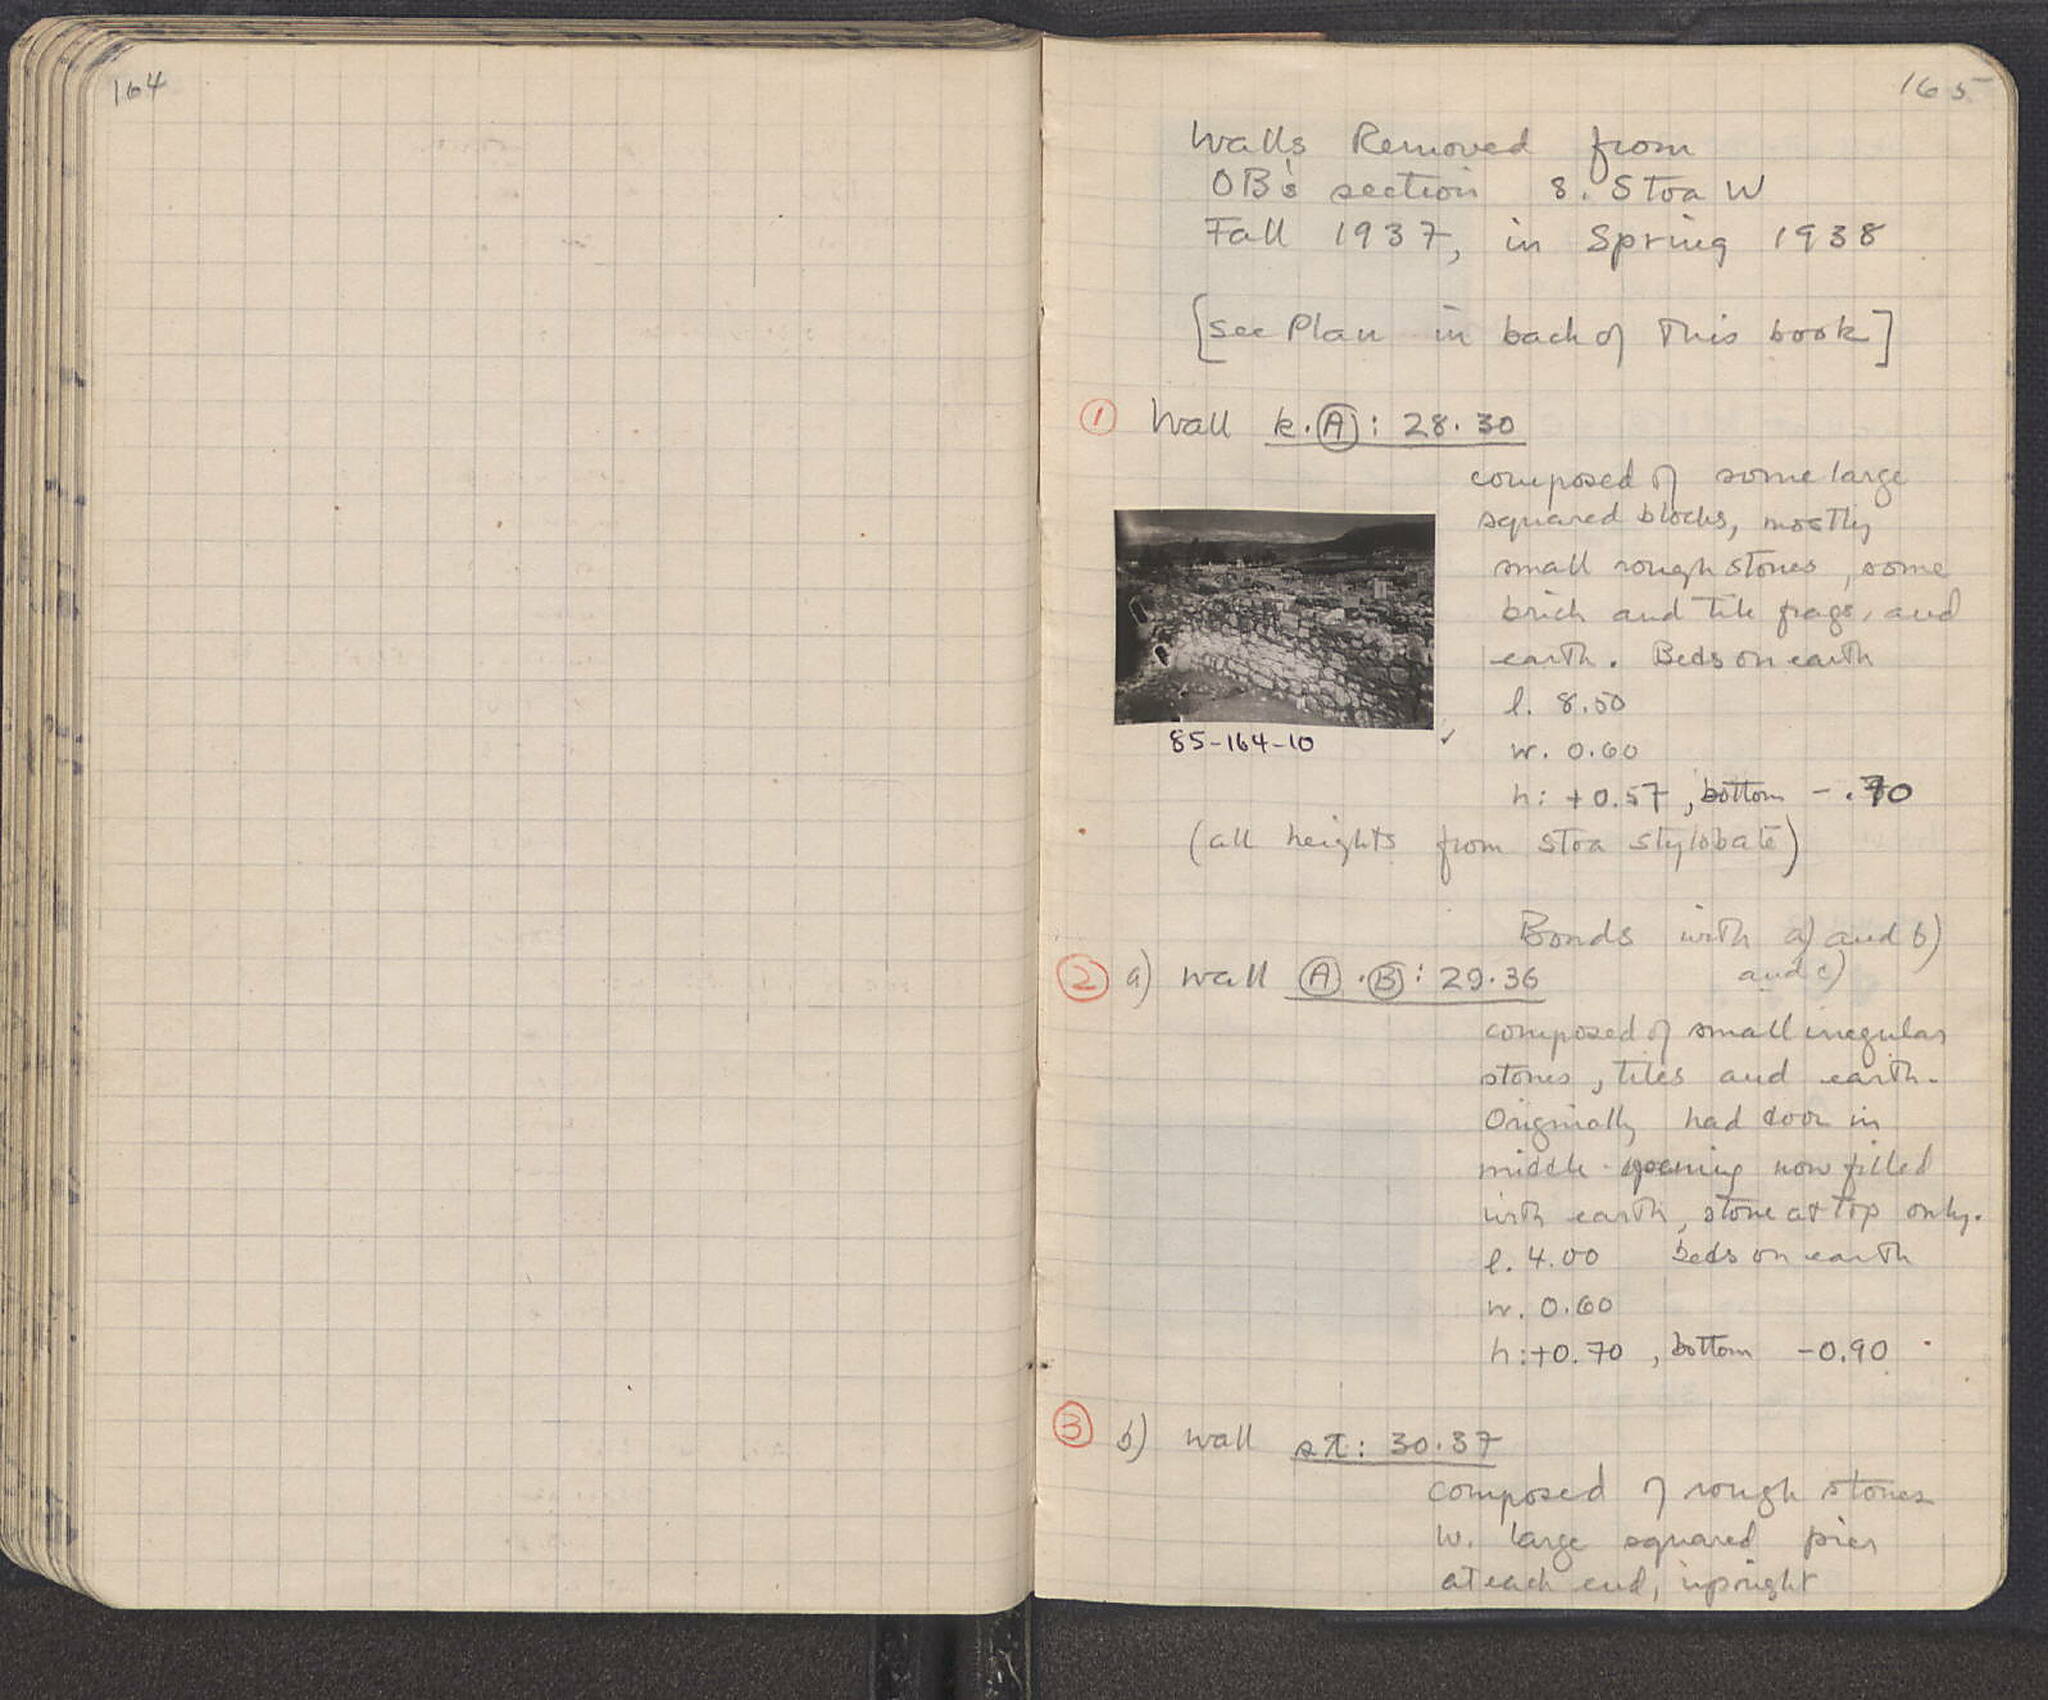 164
165
Walls Removed from
OB's section S. Stoa W
Fall 1937, in Spring 1938
[see Plan in back of this book]
① Wall k.Ⓐ: 28.30
composed of some large
squared blocks, mostly
small rough stones, some
brick and tile frags, and
earth. Beds on earth
l. 8.50
85-164-10
w. 0.60
h: +0.57, bottom -.70
(all heights from Stoa stylobate)
Bonds with a) and b)
and c)
② a) wall Ⓐ.Ⓑ: 29.36
composed of small irregular
stones, tiles and earth.
Originally had door in
middle - opening now filled
with earth, stone at top only.
l. 4.00 Beds on earth
w. 0.60
h: +0.70, bottom -0.90
③ b) wall : 30.37
composed of rough stones
w. large squared pier
at each end, upright